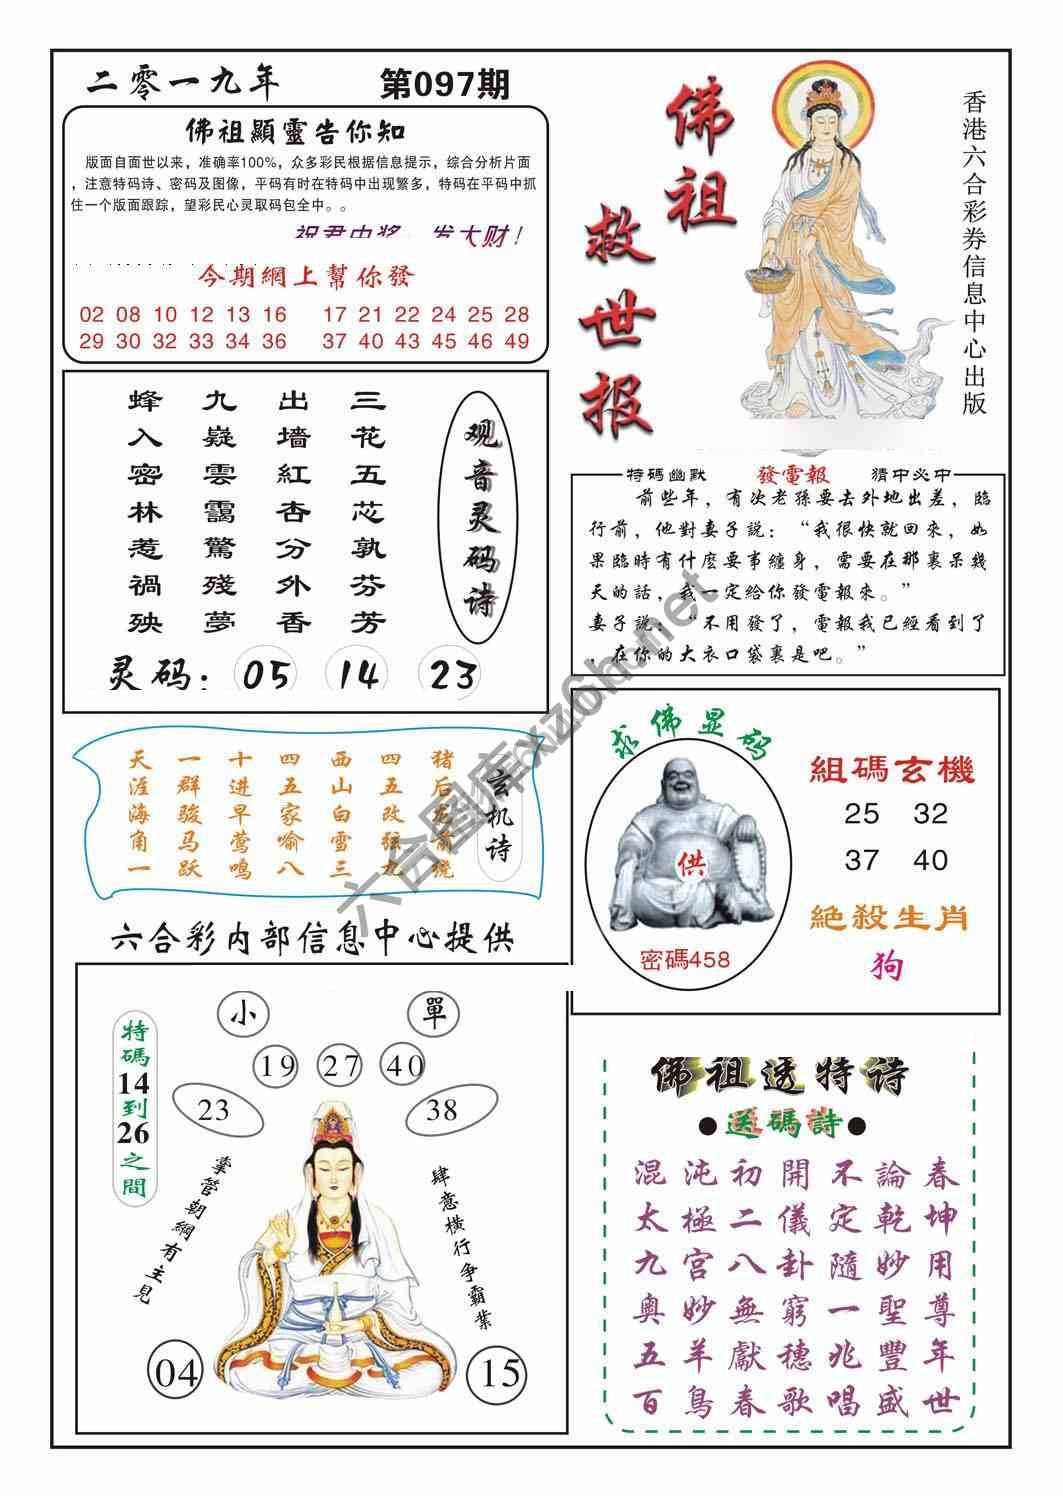 二零一九年
第097期
佛祖顯靈告你知
版面自面世以来，准确率100%，众多彩民根据信息提示，综合分析片面
，注意特码诗、密码及图像，平码有时在特码中出现繁多，特码在平码中抓
住一个版面跟踪，望彩民心灵取码包全中。。
祝君中奖，发大财！
今期網上幫你發
02 08 10 12 13 16 17 21 22 24 25 28
29 30 32 33 34 36 37 40 43 45 46 49
佛祖救世报
香港六合彩券信息中心出版
观音灵码诗
三花五芯孰芬芳
出墙紅杏分外香
九嶷雲靄驚殘夢
蜂入密林惹禍殃
灵码：05 14 23
特碼幽默 發電報 猜中必中
前些年，有次老孫要去外地出差，臨
行前，他對妻子説：“我很快就回來，如
果臨時有什麽要事纏身，需要在那裏呆幾
天的話，我一定給你發電報來。”
妻子説：“不用發了，電報我已經看到了
，在你的大衣口袋裏是吧。”
玄机诗
天一十四西四猪
涯群进五山五后
海骏早家白改龙
角马莺喻雪弦前
一跃鸣八三九绕
求佛显码
供
密碼458
組碼玄機
25 32
37 40
絶殺生肖
狗
六合彩内部信息中心提供
小
單
19 27 40
23
38
特碼14到26之間
掌管朝綱有主見
肆意橫行争霸業
04
15
佛祖透特诗
●送碼詩●
混沌初開不論春
太極二儀定乾坤
九宫八卦隨妙用
奥妙無窮一聖尊
五羊獻穗兆豐年
百鳥春歌唱盛世
六合图库xz6h.net